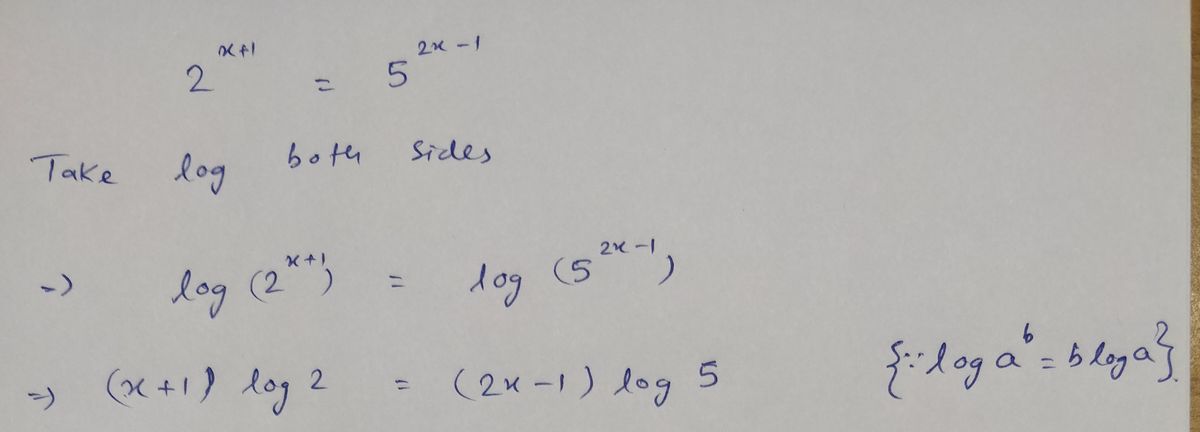 2^{x+1} = 5^{2x-1}
Take log both sides
=> log (2^{x+1}) = log (5^{2x-1})
=> (x+1) log 2 = (2x-1) log 5 {∵ log a^b = b log a}.